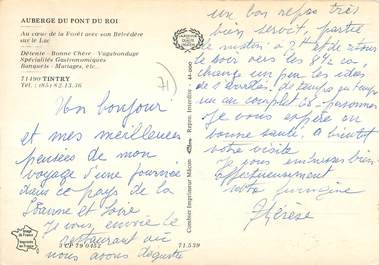 AUBERGE DU PONT DU ROI
Au cœur de la Forêt avec son Belvédère
sur le Lac
Détente - Bonne Chère - Vagabondage
Spécialités Gastronomiques
Banquets - Mariages, etc...
71490 TINTRY
Tél. : (85) 82.13.36
71
Un bonjour
et mes meilleures
pensées de mon
voyage d'une journée
dans ce pays de la
Saonne et Loire
Je vous envoie le
restaurant où
nous avons dégusté
un bon repas très
bien servit, partie
le matin à 7h et de retour
le soir vers les 8h½ ça
change un peu les idées
de temps en temps
un car complet personnes
Je vous espère en
bonne santé. A bientôt
votre visite
Je vous embrasse bien
affectueusement
votre
Thérèse
Combier Imprimeur Mâcon
Repro. Interdite - 44.000
3 CP 79 0452
71.539